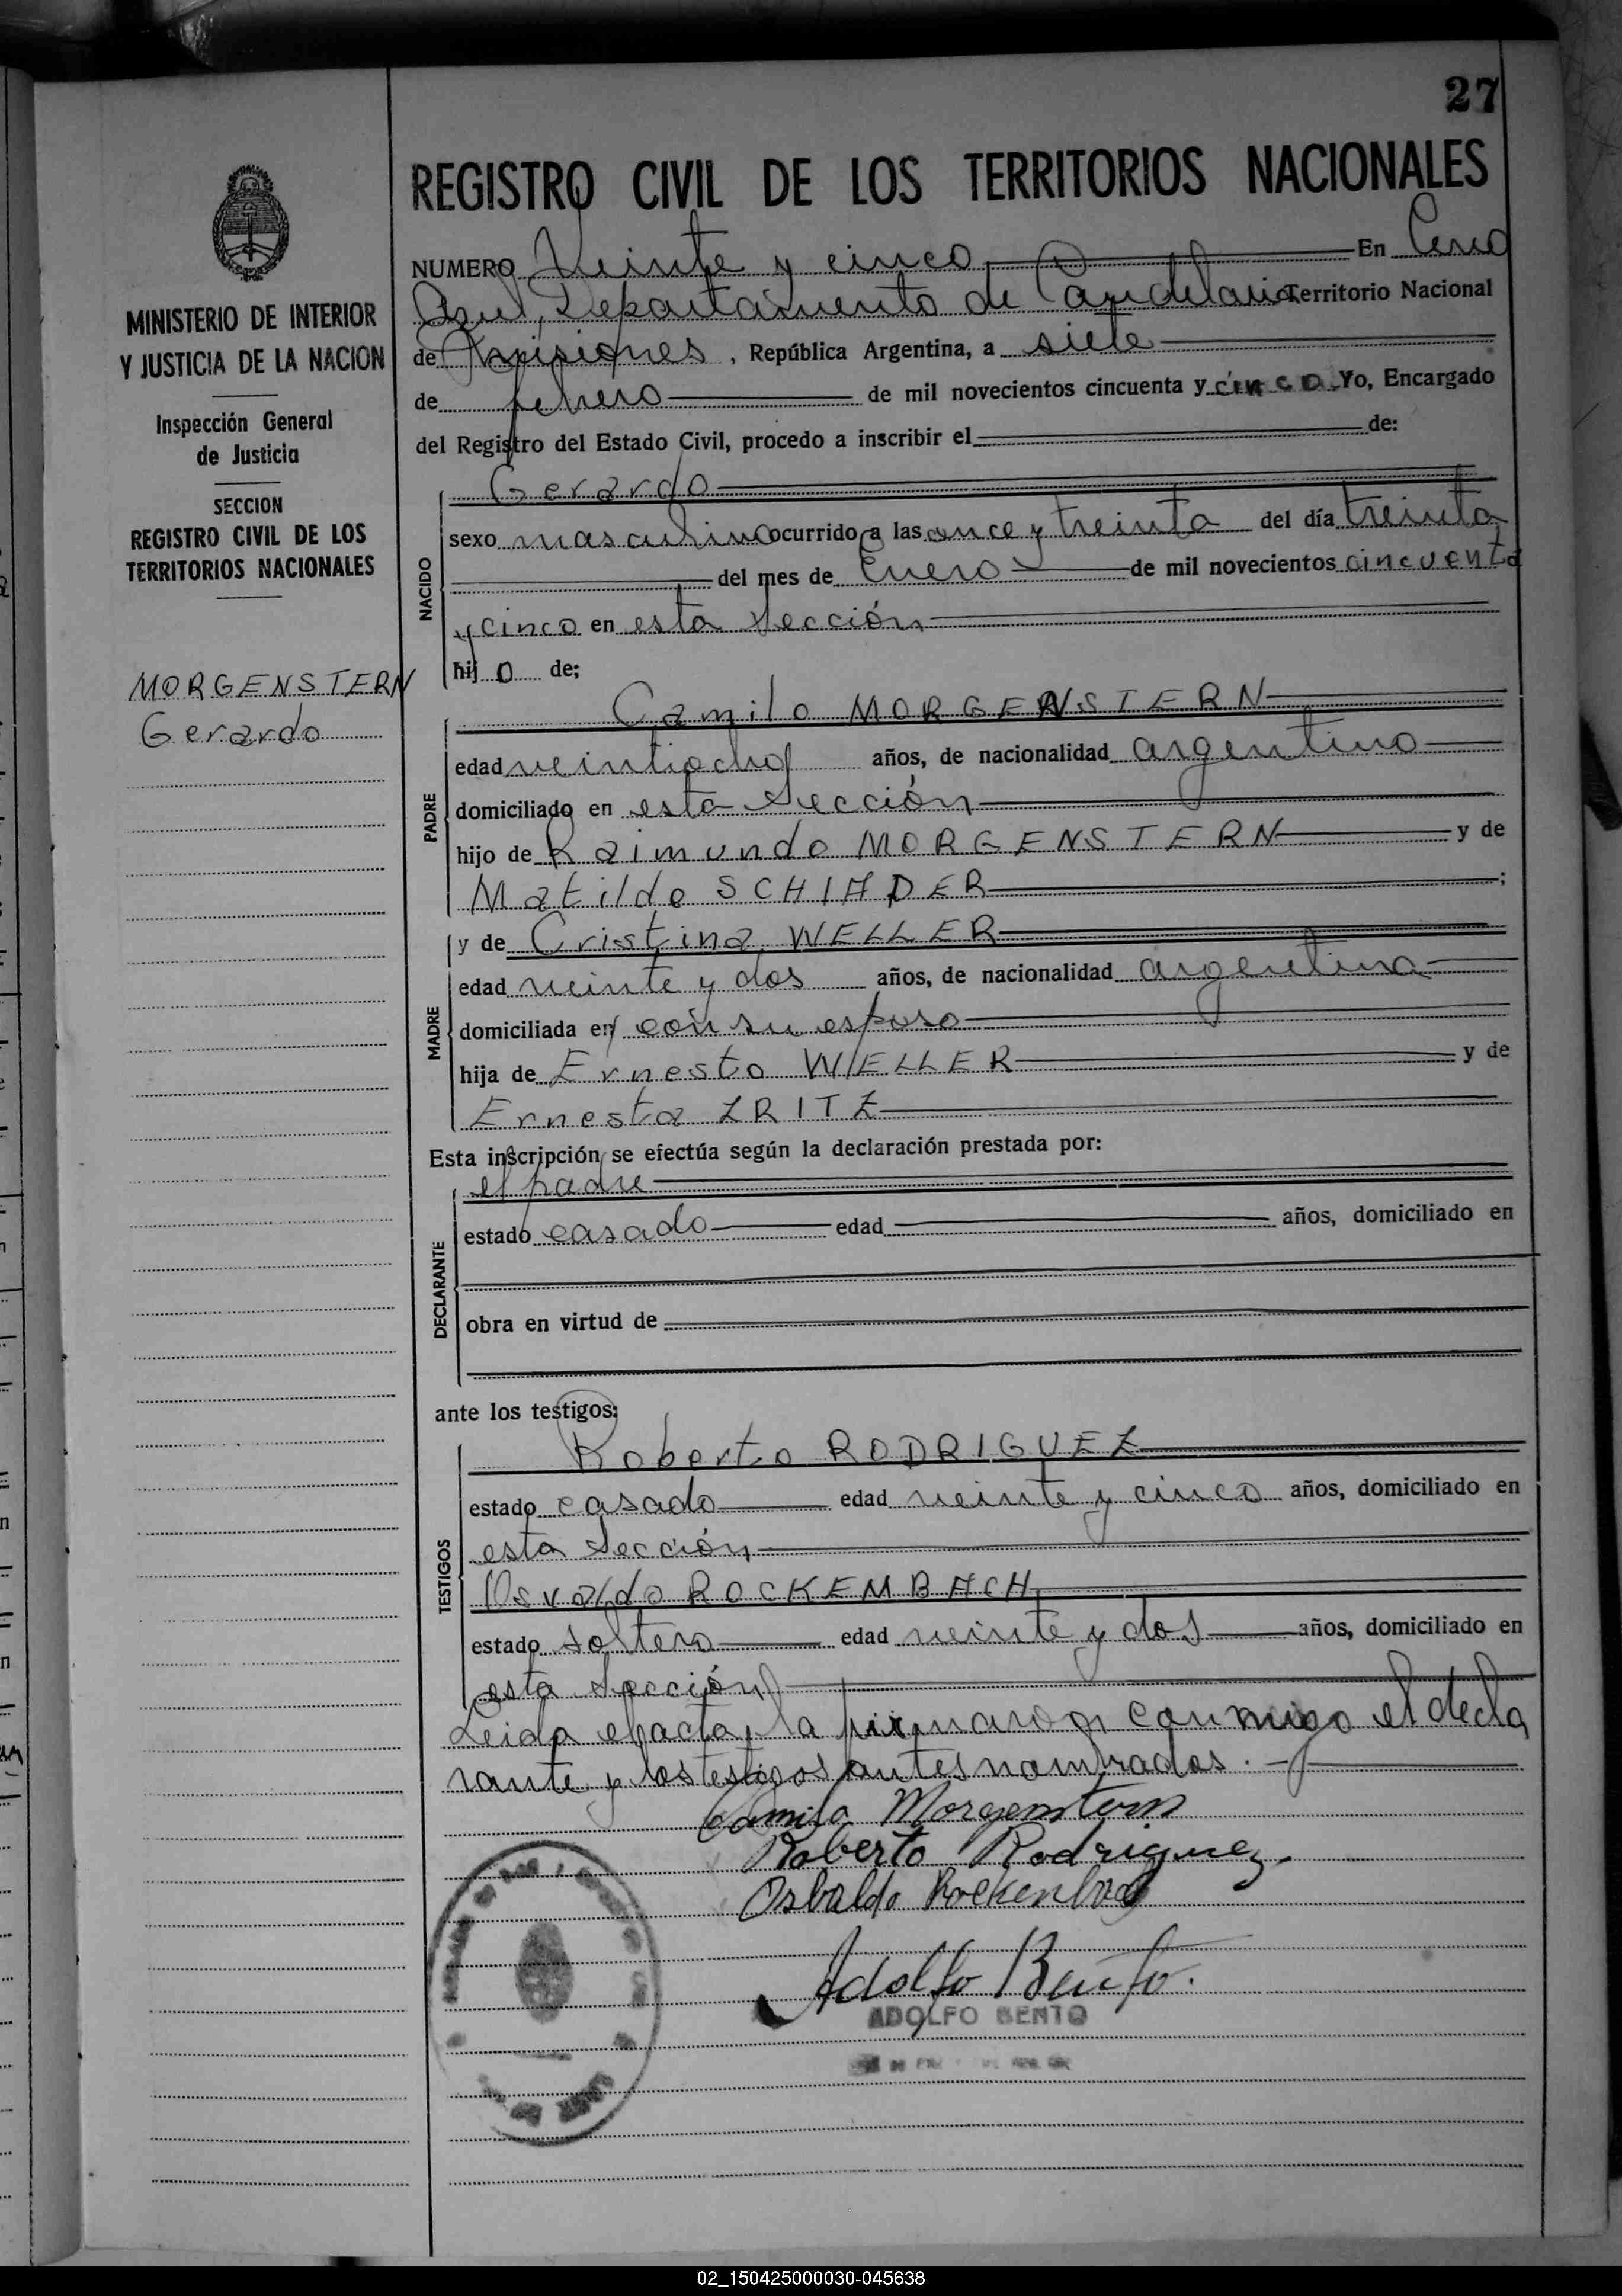 27
REGISTRO CIVIL DE LOS TERRITORIOS NACIONALES
NUMERO Veinte y cinco En Cerro
Azul, Departamento de Candelaria Territorio Nacional
de Misiones, República Argentina, a siete
de febrero de mil novecientos cincuenta y cinco Yo, Encargado
del Registro del Estado Civil, procedo a inscribir el de:
MINISTERIO DE INTERIOR
Y JUSTICIA DE LA NACION
Inspección General
de Justicia
SECCION
REGISTRO CIVIL DE LOS
TERRITORIOS NACIONALES
MORGENSTERN
Gerardo
NACIDO
Gerardo
sexo masculino ocurrido a las once y treinta del día treinta
del mes de Enero de mil novecientos cincuenta
y cinco en esta Sección
hij o de;
PADRE
Camilo MORGENSTERN
edad veintiocho años, de nacionalidad argentino
domiciliado en esta Sección
hijo de Raimundo MORGENSTERN y de
Matilde SCHIADER ;
MADRE
y de Cristina WELLER
edad veinte y dos años, de nacionalidad argentina
domiciliada en con su esposo
hija de Ernesto WELLER y de
Ernesta ZRITZ
Esta inscripción se efectúa según la declaración prestada por:
DECLARANTE
el padre
estado casado edad años, domiciliado en
obra en virtud de
ante los testigos:
TESTIGOS
Roberto RODRIGUEZ
estado casado edad veinte y cinco años, domiciliado en
esta Sección
Osvaldo ROCKEMBACH
estado soltero edad veinte y dos años, domiciliado en
esta Sección
Leida el acta, la firmaron conmigo el decla
rante y los testigos antes nombrados.
Camilo Morgenstern
Roberto Rodriguez.
Osbaldo Rockenbach
Adolfo Bento.
ADOLFO BENTO
02_150425000030-045638